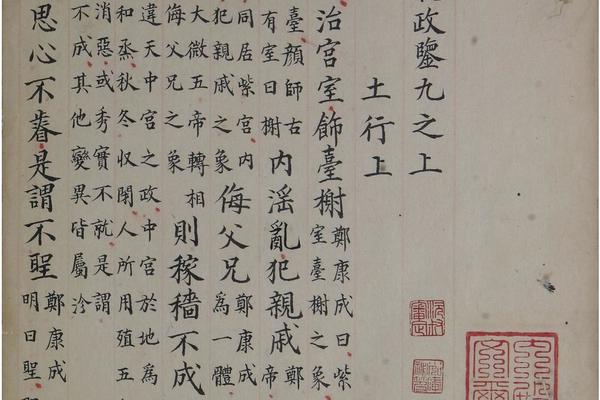 政鑒九之上
土行上
治宮室飾臺榭鄭康成曰紫
室臺榭之象
臺顏師古
有室曰榭
内滛亂犯親戚鄭
帝
同居紫宮内
犯親戚之象
侮父兄鄭康成
為一體
大微五帝轉相
侮父兄之象
則稼穡不成
違天中宮之政中宮於地為
和烝秋冬収閉人所用殖五
消惡或秀實不就是謂
不成其他變異皆屬沴
思心不是謂不聖鄭康成
明曰聖